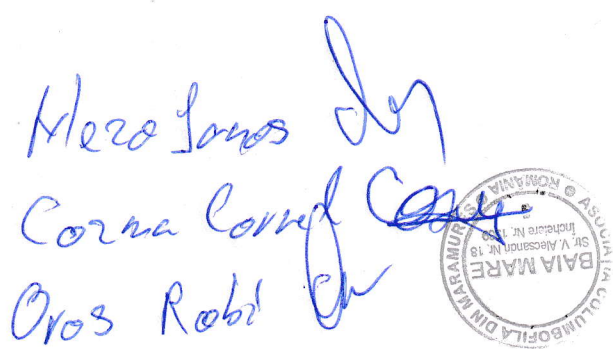 Mezo Janos
Cozma Cornel
Oros Robi
ASOCIATIA COLUMBOFILA DIN MARAMURES
ROMÂNIA
BAIA MARE
Str. V. Alecsandri Nr. 18
Încheiere Nr.